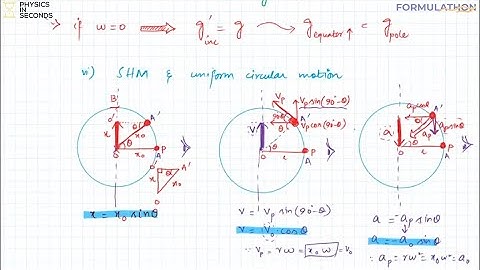 PHYSICS
IN
SECONDS
FORMULATHON
if w=0 ⟹ g'inc = g g equator↑ = g pole
vi) SHM & uniform circular motion
B
O' A'
x θ x₀
θ
x₀ P
A
A'
x x₀
x = x₀ sinθ
Vp Vp sin(90-θ)
90-θ A'
Vp cos(90-θ)
V θ
O P
A
v = Vp sin(90-θ)
v = V₀ cosθ
∵ Vp = rω = x₀ω = V₀
ap cosθ A'
ap ap sinθ
a
θ
O P
A
a = -ap sinθ
a = -a₀ sinθ
∵ ap = rω² = x₀ω² = a₀